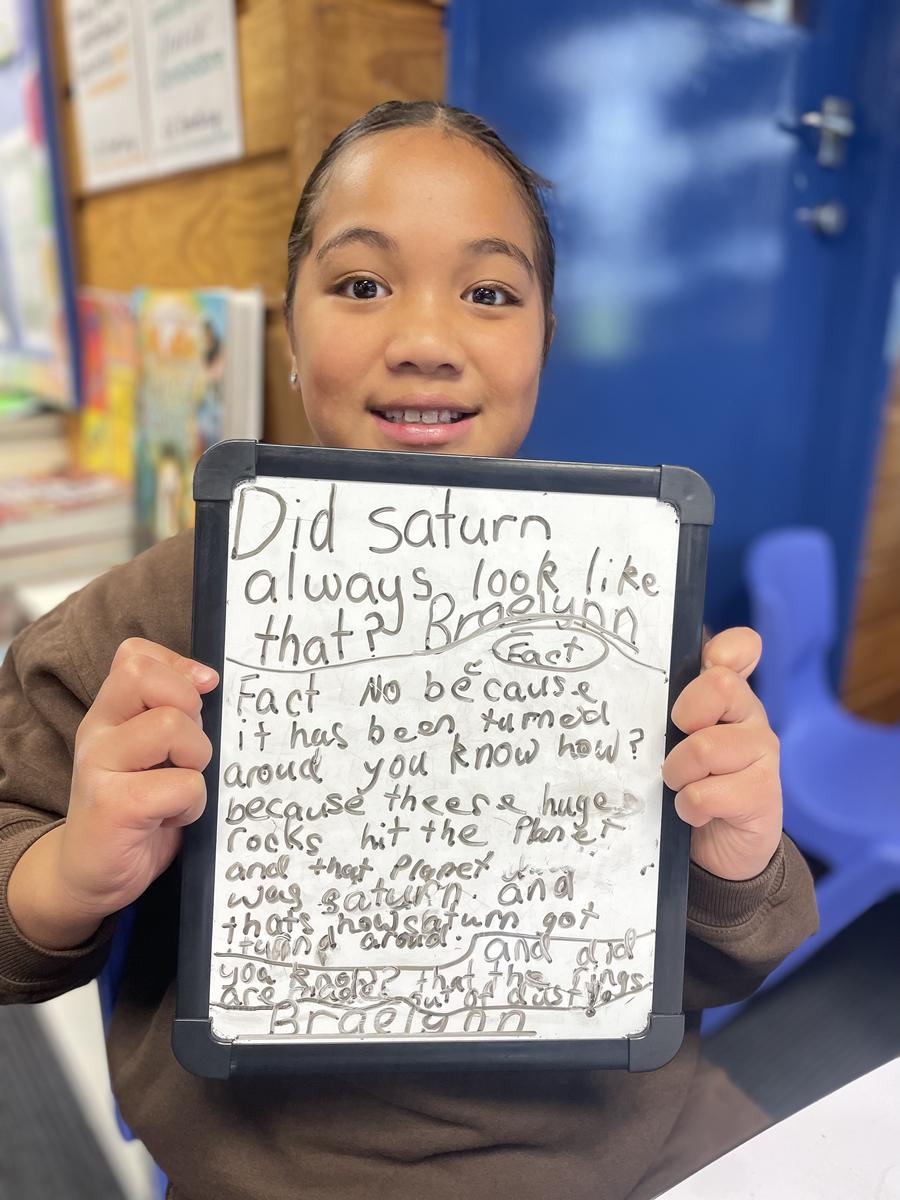 Did saturn
always look like
that? Braelynn
Fact
Fact No because
it has been turned
aroud you know how?
because theese huge
rocks hit the Planet
and that Planet
was saturn. and
thats how saturn got
turnd aroud. and did
you know? that the rings
are made out of dust!
Braelynn